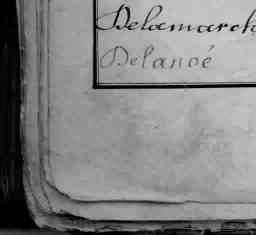 Delamarch
Delanoé